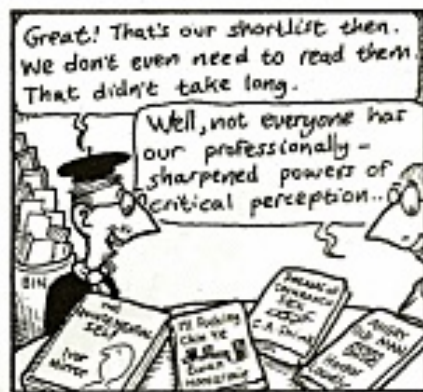 Great! That's our shortlist then.
We don't even need to read them.
That didn't take long.
Well, not everyone has
our professionally-
sharpened powers of
critical perception..
BIN
THE
SELF
Ivor
Mirror
I'll
Chin Ye
SEX
C.A.
MAN